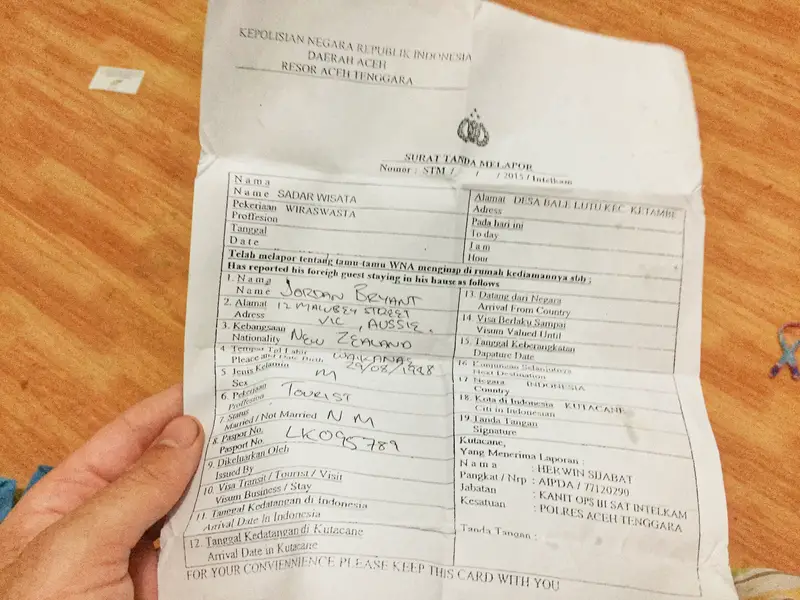 KEPOLISIAN NEGARA REPUBLIK INDONESIA
DAERAH ACEH
RESOR ACEH TENGGARA
SURAT TANDA MELAPOR
Nomor : STM / / / 2015 / Intelkam
Nama
Name SADAR WISATA
Pekerjaan WIRASWASTA
Proffesion
Tanggal
Date
Alamat DESA BALE LUTU KEC KETAMBE
Adress
Pada hari ini
To day
Jam
Hour
Telah melapor tentang tamu-tamu WNA menginap di rumah kediamannya sbb :
Has reported his foreigh guest staying in his hause as follows
1. Nama
Name JORDAN BRYANT
2. Alamat 12 STREET
Adress VIC, AUSSIE.
3. Kebangsaan
Nationality NEW ZEALAND
4 Tempat Tgl Lahir WAIKANAE
Pleace and Date Birth 29/08/1998
5 Jenis Kelamin
Sex M
6. Pekerjaan
Proffesion TOURIST
7 Status
Married / Not Married N M
8. Paspor No.
Pasport No. LK095789
9. Dikeluarkan Oleh
Issued By
10. Visa Transit / Tourist / Visit
Visum Business / Stay
11. Tanggal Kedatangan di Indonesia
Arrival Date In Indonesia
12. Tanggal Kedatangan di Kutacane
Arrival Date in Kutacane
13. Datang dari Negara
Arrival From Country
14. Visa Berlaku Sampai
Visum Valued Until
15. Tanggal Keberangkatan
Dapature Date
16
Next Destination
17. Negara INDONESIA
Country
18. Kota di Indonesia KUTACANE
Citi in Indonesian
19. Tanda Tangan
Signature
Kutacane,
Yang Menerima Laporan :
Nama : HERWIN SIJABAT
Pangkat / Nrp : AIPDA / 77120290
Jabatan : KANIT OPS III SAT INTELKAM
Kesatuan : POLRES ACEH TENGGARA
Tanda Tangan :
FOR YOUR CONVIENNIENCE PLEASE KEEP THIS CARD WITH YOU